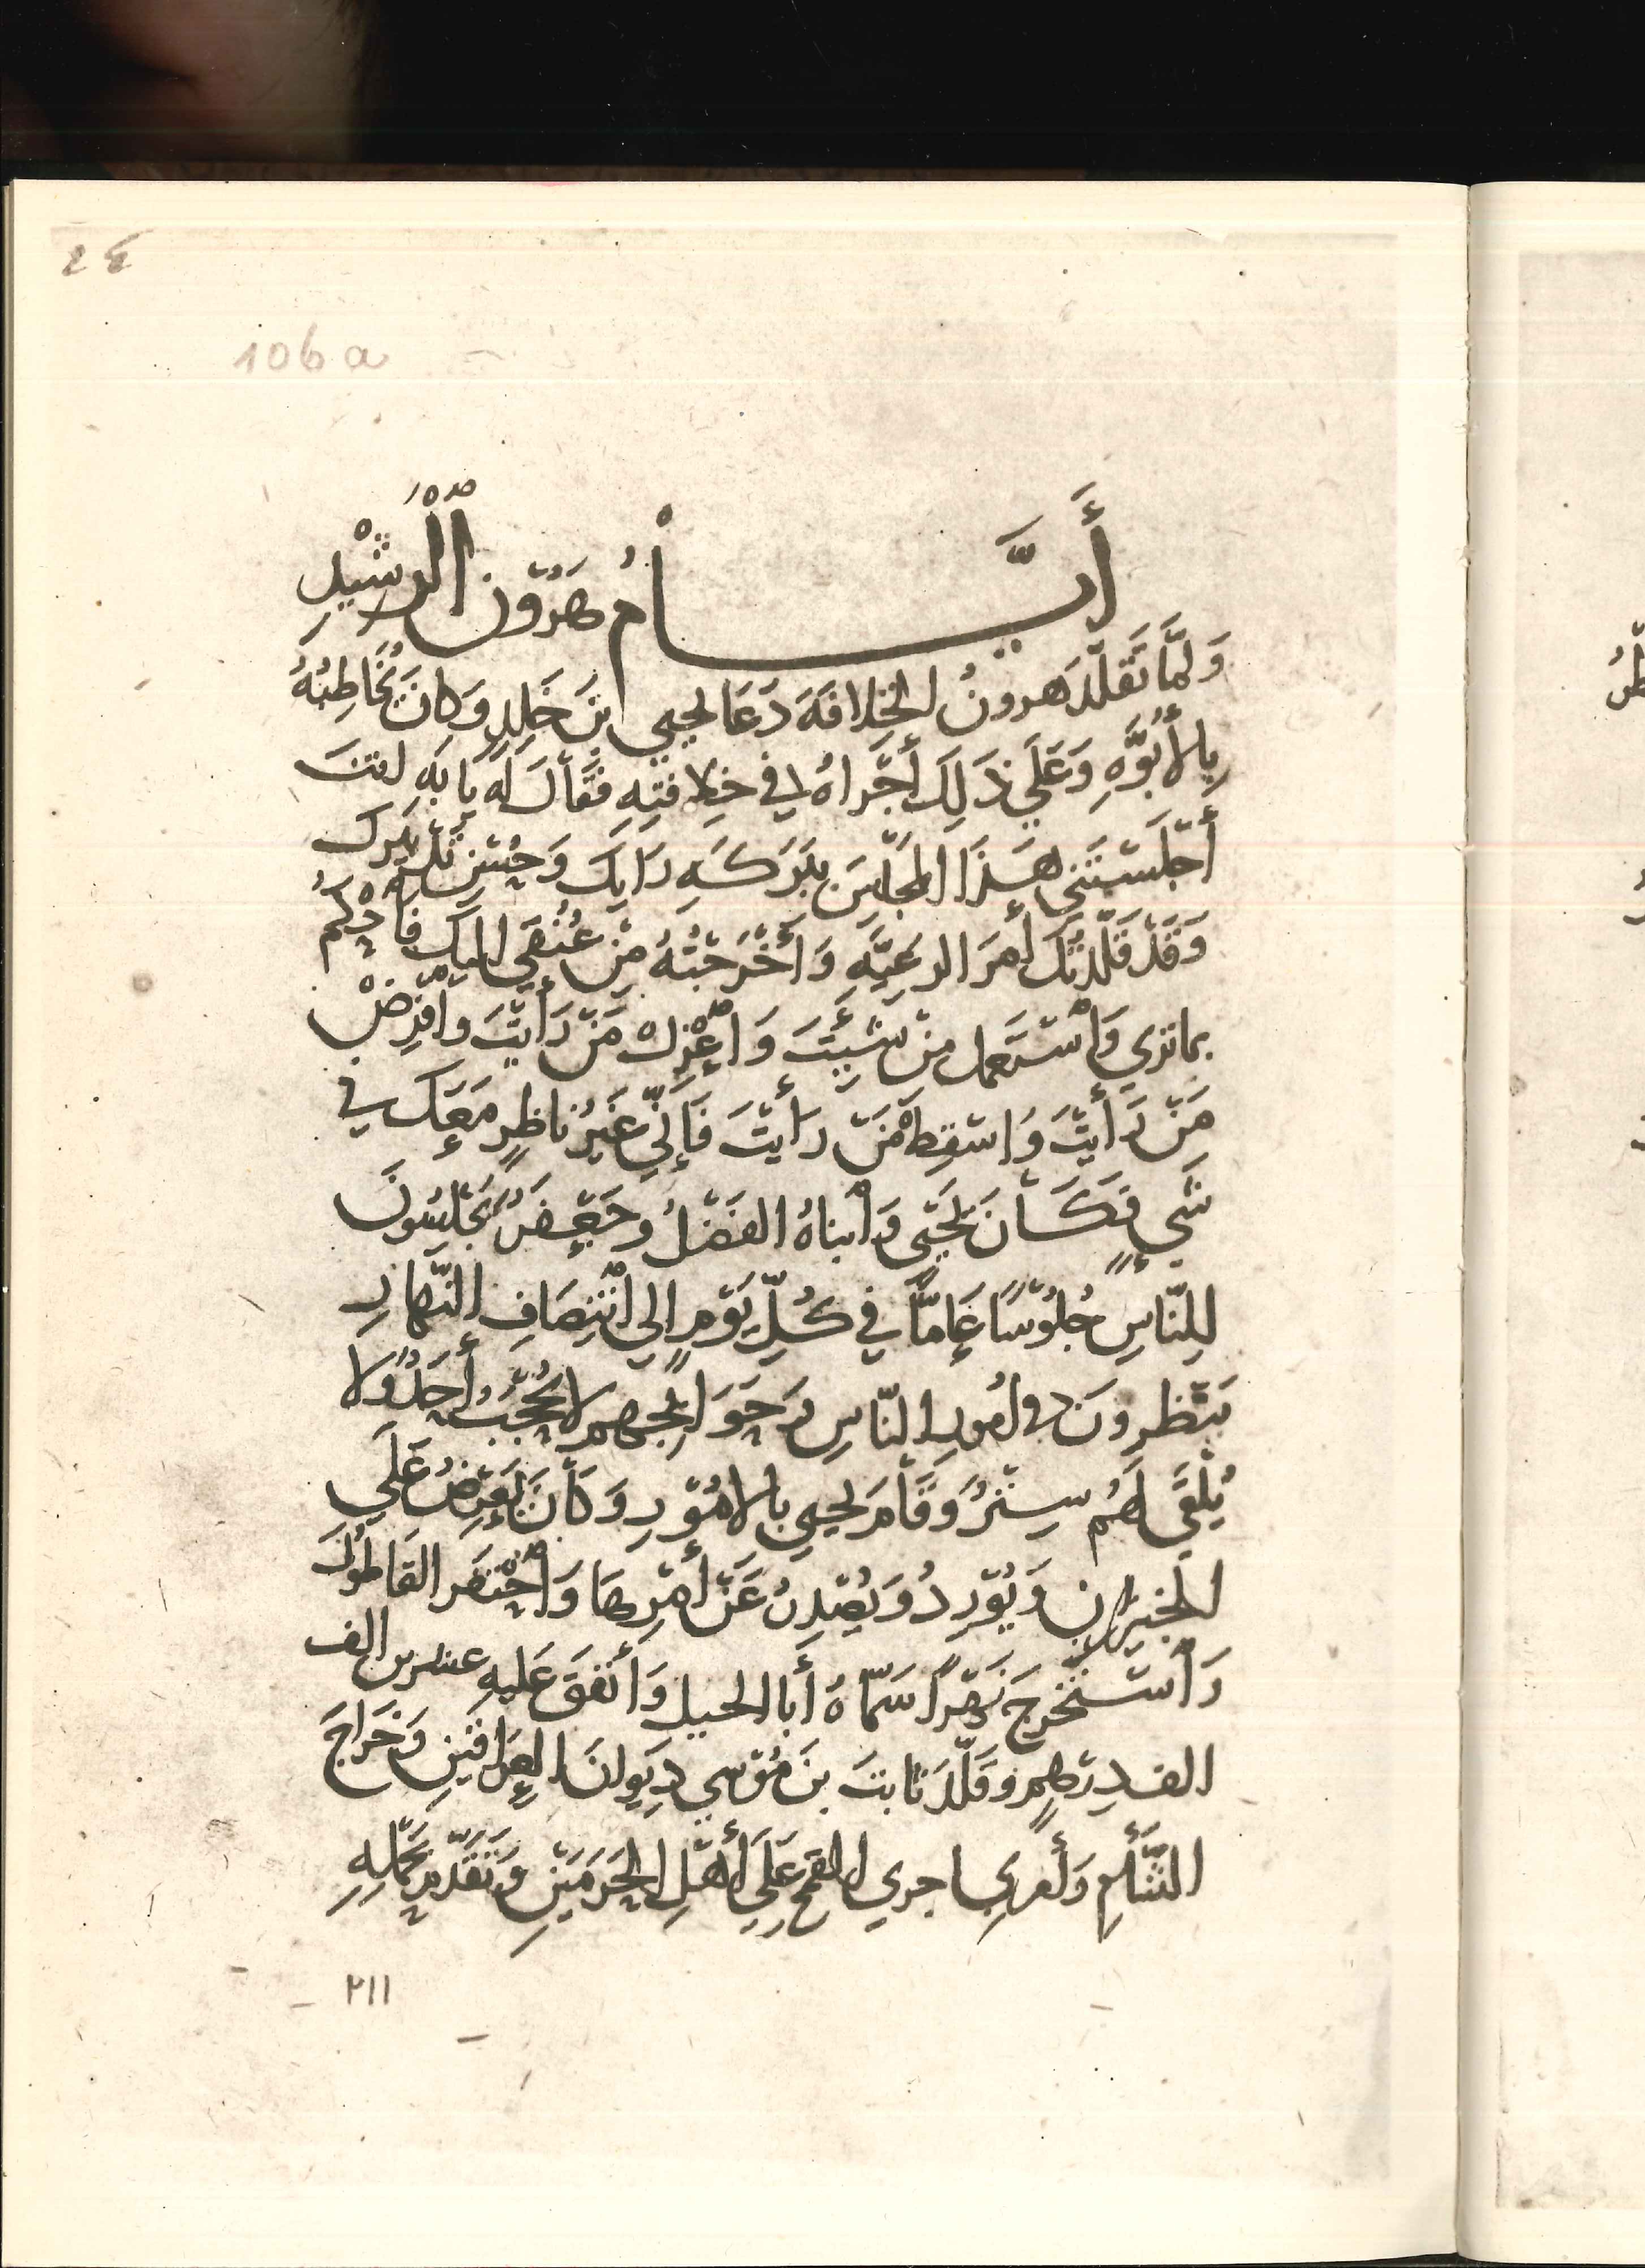 ٢٤
106 a
أَيَّامُ هَرُون الرَّشِيْدِ
وَلمَّا تَقَلَّدَ هَرونُ الخِلافَةَ دَعَا يحيى ابنَ خَلِدٍ وَكانَ يُخَاطِبُهُ
بِالأُبُوَّةِ وَعَلَي ذَلِكَ أَجْرَاهُ فى خِلافتِهِ فقَالَ لَهُ يا بَهِ انتَ
أَجْلَسْتَنِى هَذَا المَجْلِسَ بِبَرَكَةِ رَايِكَ وَحُسْنِ تَدْبِيرِكَ
وَقَدْ قَلَّدْتُكَ أَمرَ الرعِيَّةِ وَأَخْرَجْتُهُ مِنْ عُنُقِي اليكَ فَاحْكُمْ
بماتري وَاسْتَعمل مَنْ شِئْتَ وَاعْزِلْ مَنْ رَأَيْتَ وافْرِضْ
مَنْ رَأَيْتَ وَاسْقِطْ مَنْ رَأَيْتَ فَإِنِّي غَيرُ ناظِرٍ مَعَكَ في
شَيٍ فكَانَ يَحْيَى وَابْناهُ الفَضْلُ وجَعْفَرٌ يَجْلِسُونَ
لِلنّاسِ جُلُوْسًا عَامًّا في كُلِّ يَوْمٍ إلي انْتِصَافِ النَّهارِ
يَنْظُرونَ في امُورِ النّاسِ وَحَوَائِجِهِم لا يُحْجَبُ أَحَدٌ وَلا
يُلْقَى لَهُم سِتْرٌ وَقَامَ يحيي بالامُوْرِ وَكَانَ يَعْرِضُ عَلَى
الخيزران وَيُوْرِدُ وَيُصْدِرُ عَنْ أَمْرِهَا وَاحْتفَر القَاطُولَ
وَاسْتَخْرَجَ نَهْرًا سَمَّاهُ أَبا الجيل وَأَنفَقَ عَليهِ عشرين الف
الف دِرْهمٍ وقَلّدَ ثابتَ بنَ مُوْسي دِيَوانَ العِراقَيْنِ وَخَراجَ
الشَّأمِ وَأمر باجري القمح عَلَي أَهْلِ الحَرَمَيْنِ وَتَقَدَّمَ بحَمْلِهِ
٢١١